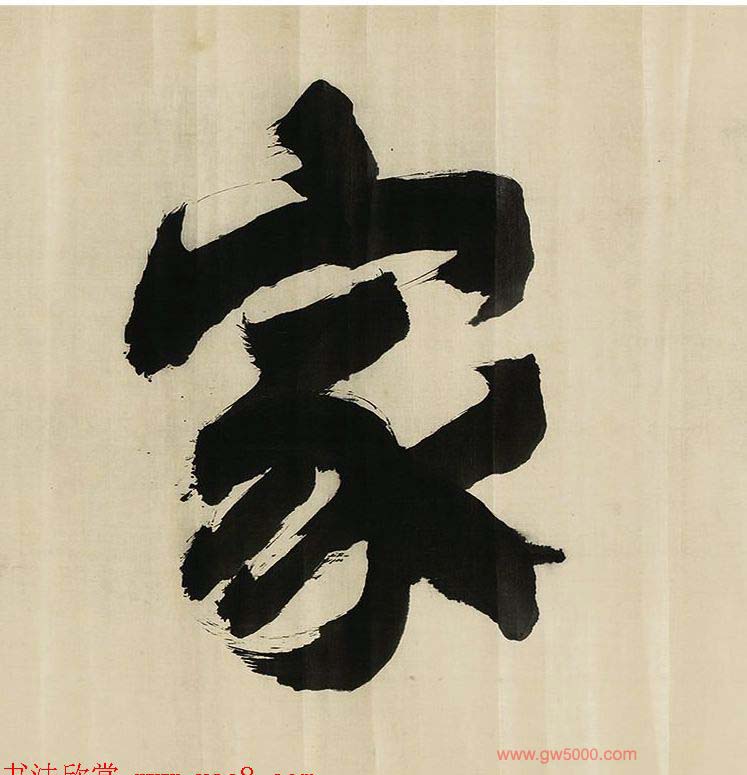 家
www.gw5000.com
书法欣赏 www.yac8.com